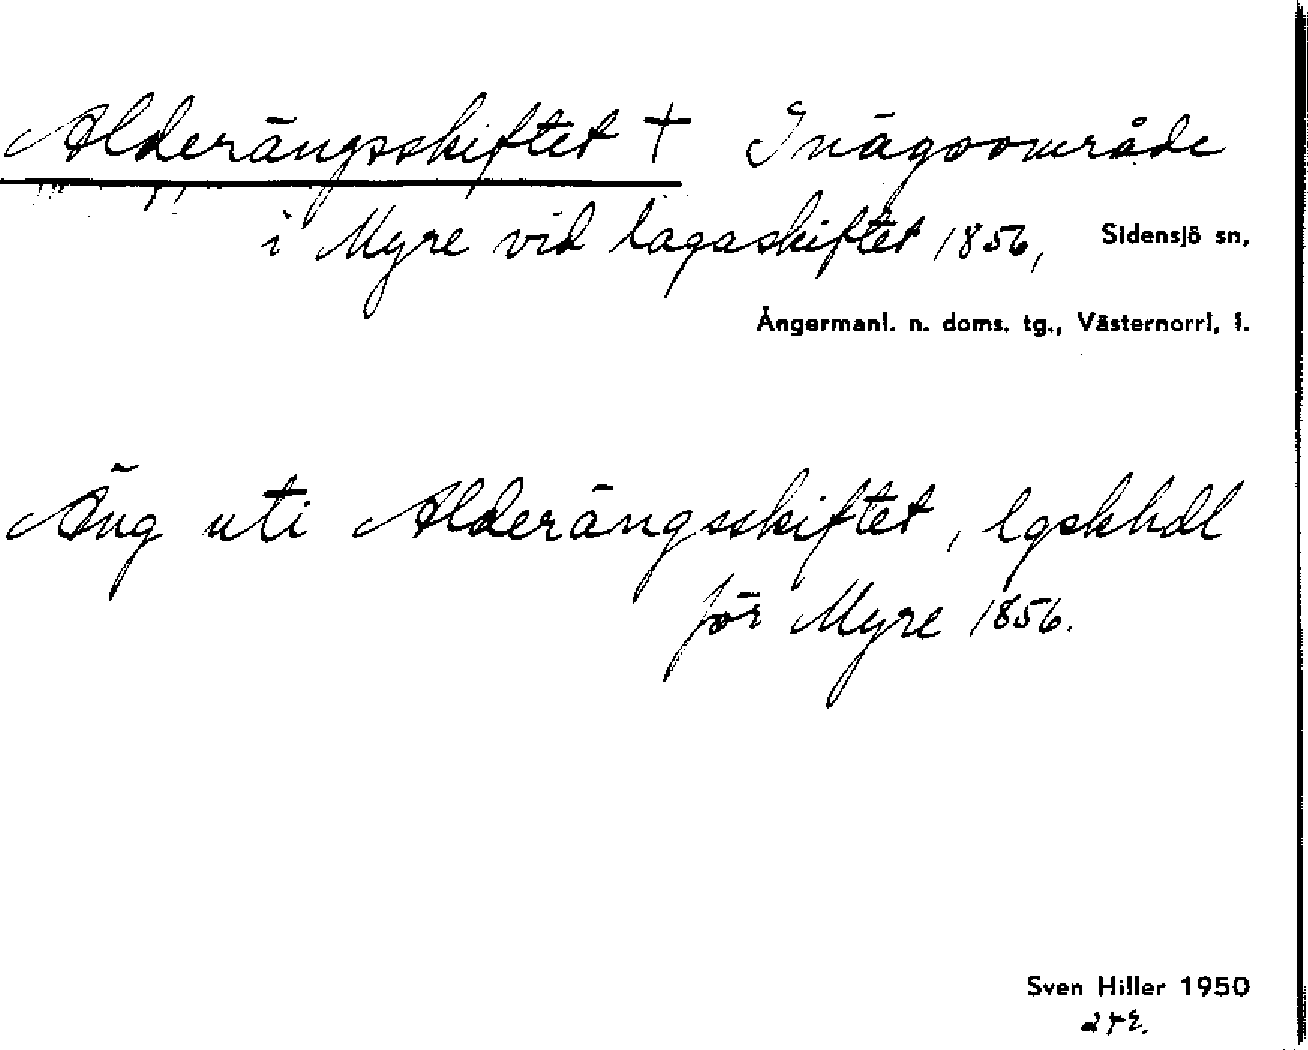 Alderängsskiftet † Inägoområde
i Myre vid lagaskiftet 1856, Sidensjö sn,
Ångermanl. n. doms. tg., Västernorrl. l.
Äng uti Alderängsskiftet, lgskhdl
för Myre 1856.
Sven Hiller 1950